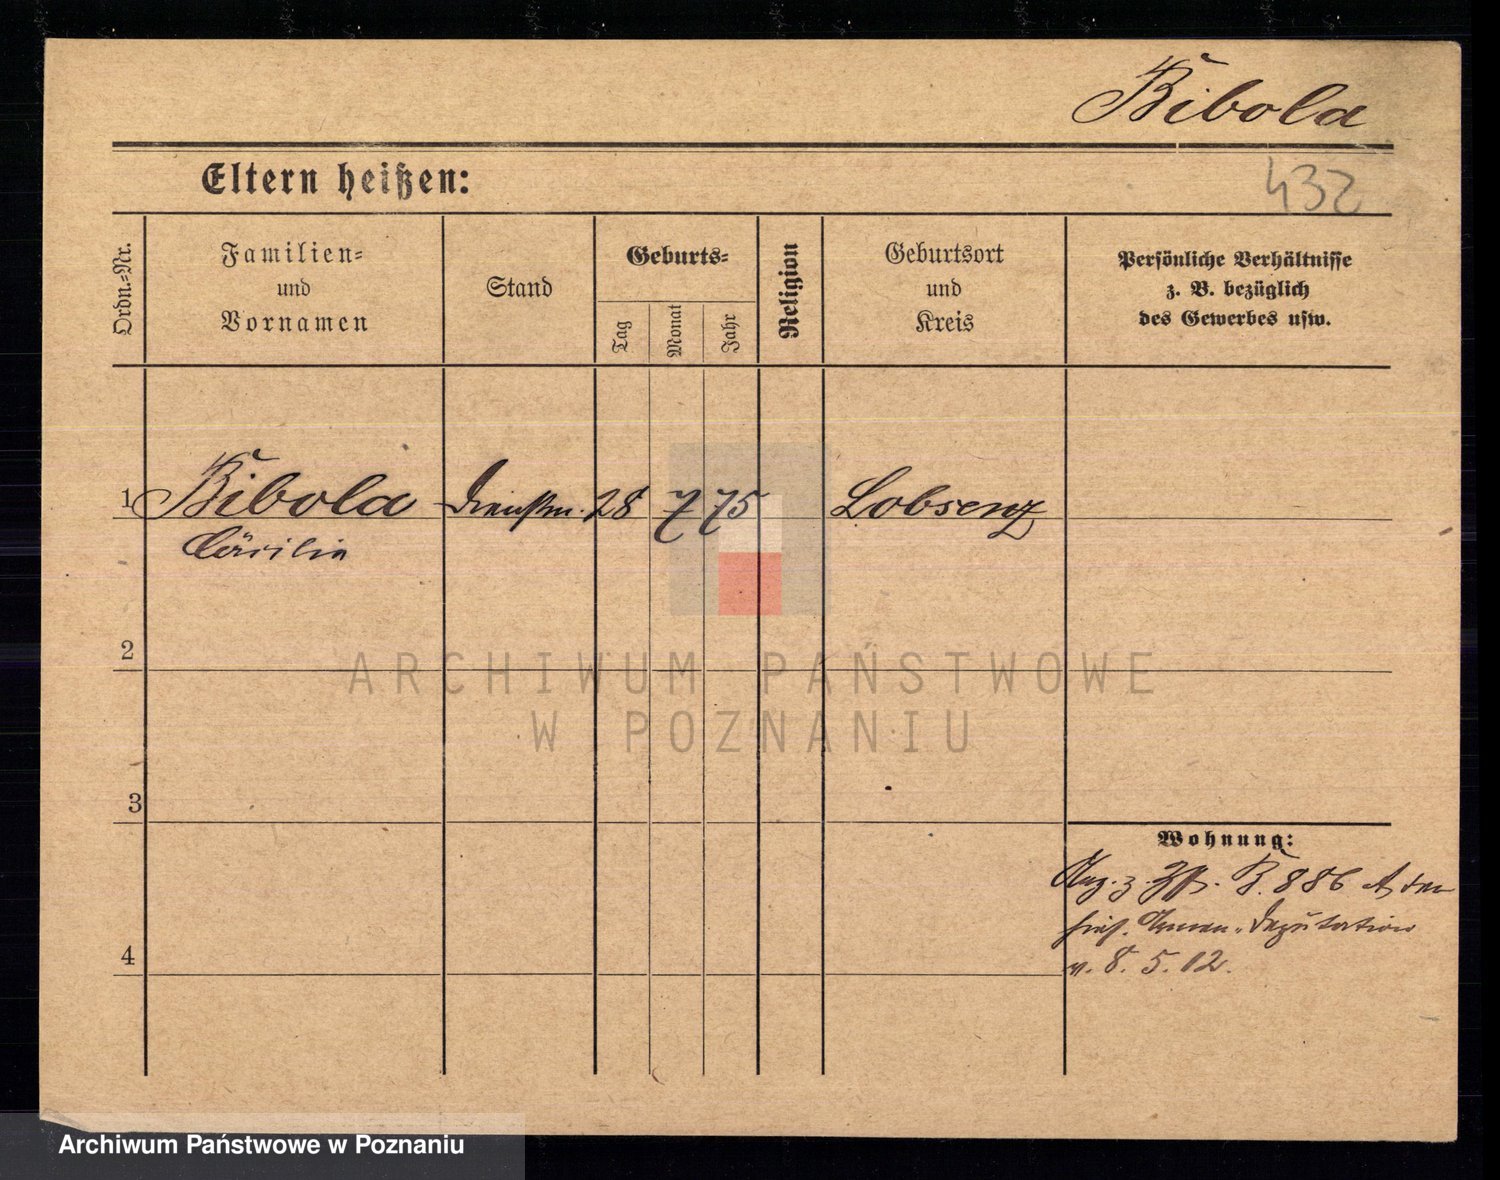 Bibola
Eltern heißen:
432
Ordn.-Nr.
Familien-
und
Vornamen
Stand
Geburts-
Tag
Monat
Jahr
Religion
Geburtsort
und
Kreis
Persönliche Verhältnisse
z. B. bezüglich
des Gewerbes usw.
1 Bibola Dienstm. 28 7 75 Lobsenz
Cäcilia
2
3
4
Wohnung:
z. B. 886 A, der
hies. Armen-Deputation
v. 8. 5. 12.
ARCHIWUM PAŃSTWOWE
W POZNANIU
Archiwum Państwowe w Poznaniu